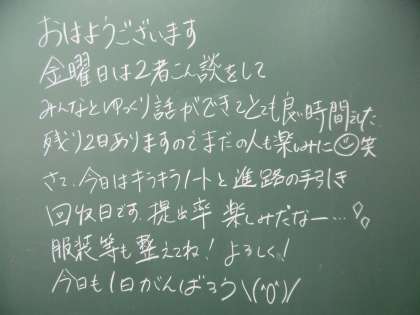 おはようございます
金曜日は2者こん談をして
みんなとゆっくり話ができてとても良い時間でした
残り2日ありますのでまだの人も楽しみに 笑
さて、今日はキラキラノートと進路の手引き
回収日です。提出率 楽しみだなー…
服装等も整えてね!よろしく!
今日も1日がんばろう\(^0^)/